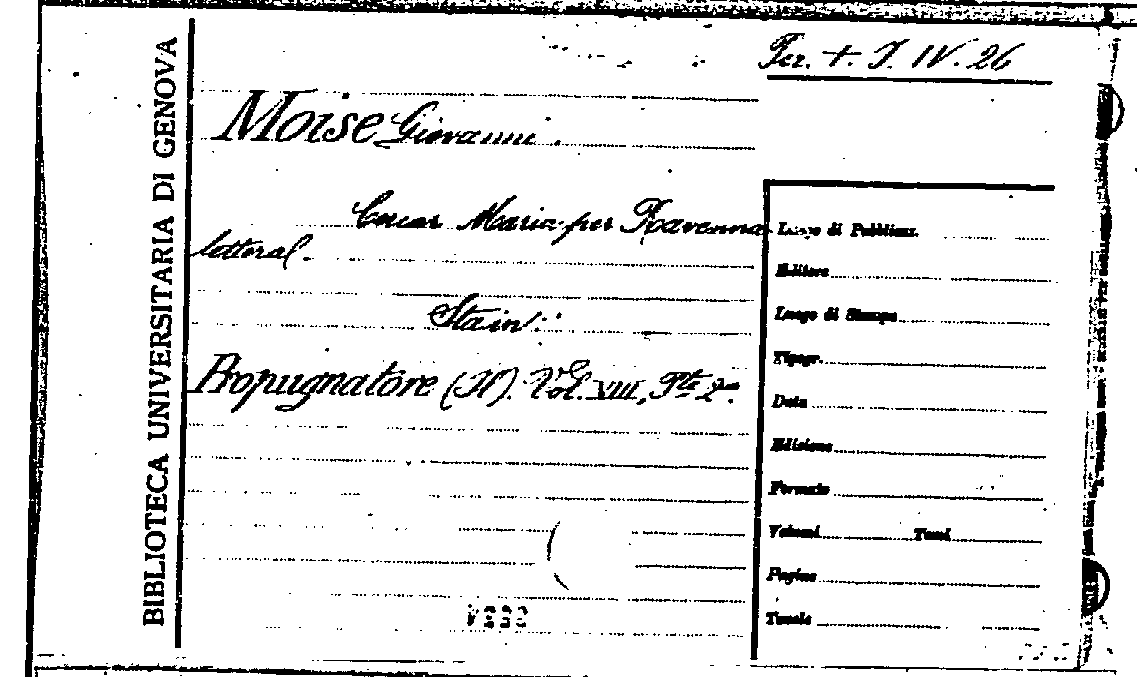 Per. + J. IV. 26
BIBLIOTECA UNIVERSITARIA DI GENOVA
Moise Giovanni.
Cercar Maria per Ravenna
letteral.
Sta in:
Propugnatore (Il). Vol. XIII, Pte 2a.
Luogo di Pubblicaz.
Editore
Luogo di Stampa
Tipogr.
Data
Edizione
Formato
Volumi Tomi
Pagine
Tavole